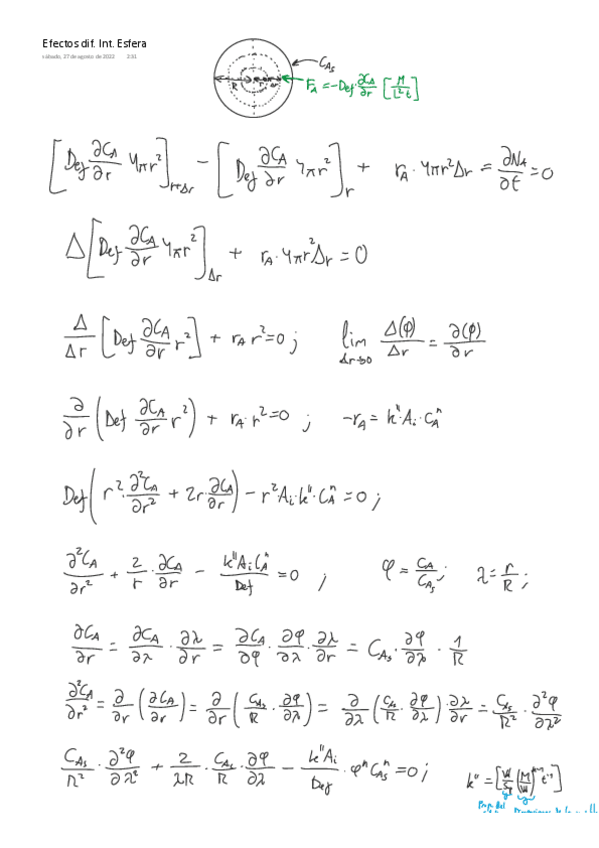 Efectos dif. Int. Esfera
sábado, 27 de agosto de 2022 2:31
R r Δr C_{As}
F_A = -Def ∂C_A/∂r [M/L²t]
[Def ∂C_A/∂r 4πr²]_{r+Δr} - [Def ∂C_A/∂r 4πr²]_r + r_A · 4πr²Δr = ∂N_A/∂t = 0
Δ[Def ∂C_A/∂r 4πr²]_{Δr} + r_A · 4πr²Δr = 0
Δ/Δr [Def ∂C_A/∂r r²] + r_A r² = 0 ; lim_{Δr→0} Δ(φ)/Δr = ∂(φ)/∂r
∂/∂r (Def ∂C_A/∂r r²) + r_A · r² = 0 ; -r_A = k'' · A_i · C_A^n
Def (r² · ∂²C_A/∂r² + 2r · ∂C_A/∂r) - r² A_i · k'' · C_A^n = 0 ;
∂²C_A/∂r² + 2/r · ∂C_A/∂r - k'' A_i C_A^n/Def = 0 ; φ = C_A/C_{As} ; λ = r/R ;
∂C_A/∂r = ∂C_A/∂λ · ∂λ/∂r = ∂C_A/∂φ · ∂φ/∂λ · ∂λ/∂r = C_{As} · ∂φ/∂λ · 1/R
∂²C_A/∂r² = ∂/∂r (∂C_A/∂r) = ∂/∂r (C_{As}/R · ∂φ/∂λ) = ∂/∂λ (C_{As}/R · ∂φ/∂λ) · ∂λ/∂r = C_{As}/R² · ∂²φ/∂λ²
C_{As}/R² · ∂²φ/∂λ² + 2/λR · C_{As}/R · ∂φ/∂λ - k'' A_i/Def · φ^n C_{As}^n = 0 ;
k'' =